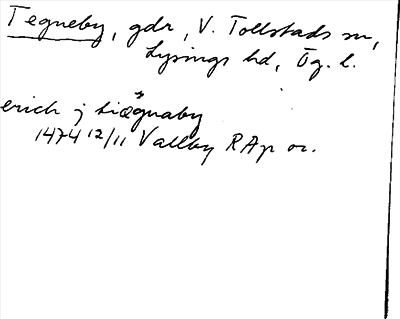 Tegneby, gdr, V. Tollstads sn,
Lysings hd, Ög. l.
erich j tiægnaby
1474 12/11 Vallby RAp or.